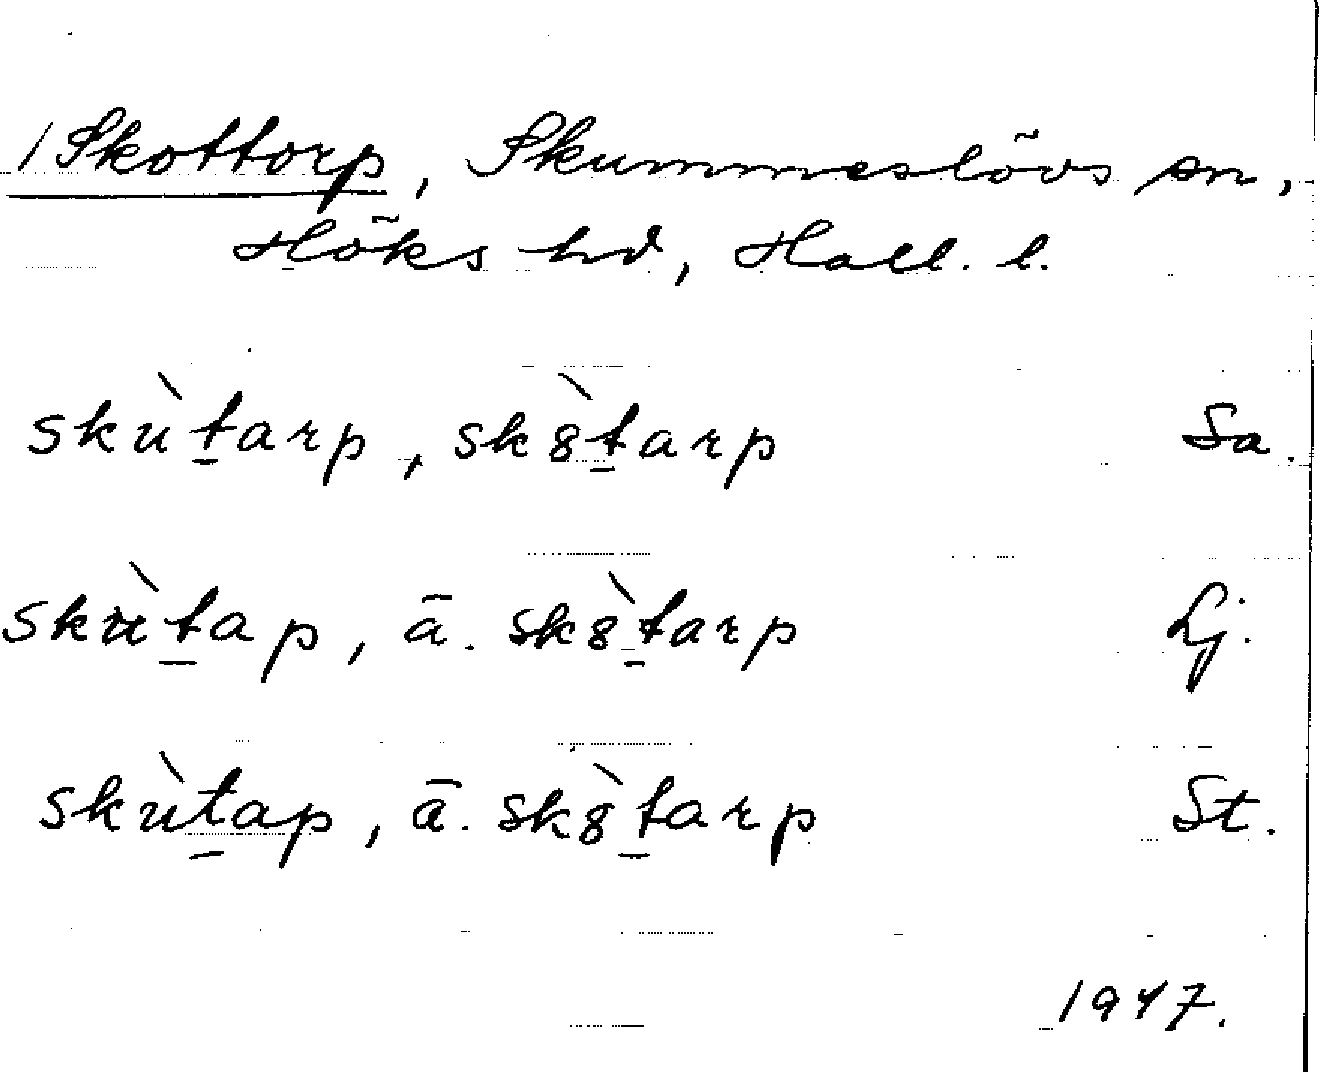 /Skottorp, Skummeslövs sn,
Höks hd, Hall. l.
skùt̠arp, sk8̀t̠arp Sa.
skùt̠ap, ā. sk8̀t̠arp Lj.
skùt̠ap, ā. sk8̀t̠arp St.
1947.